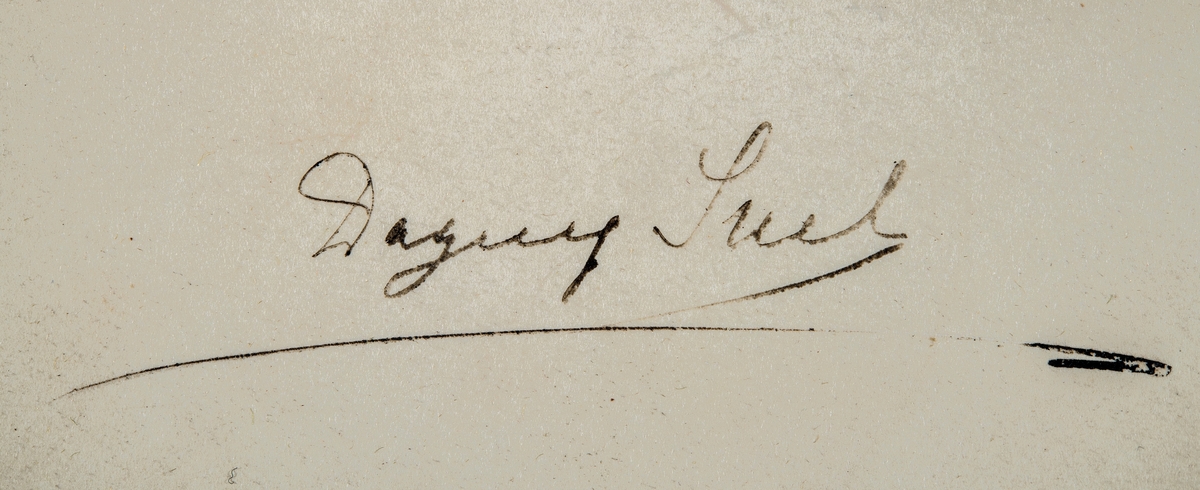 Dagny Juel